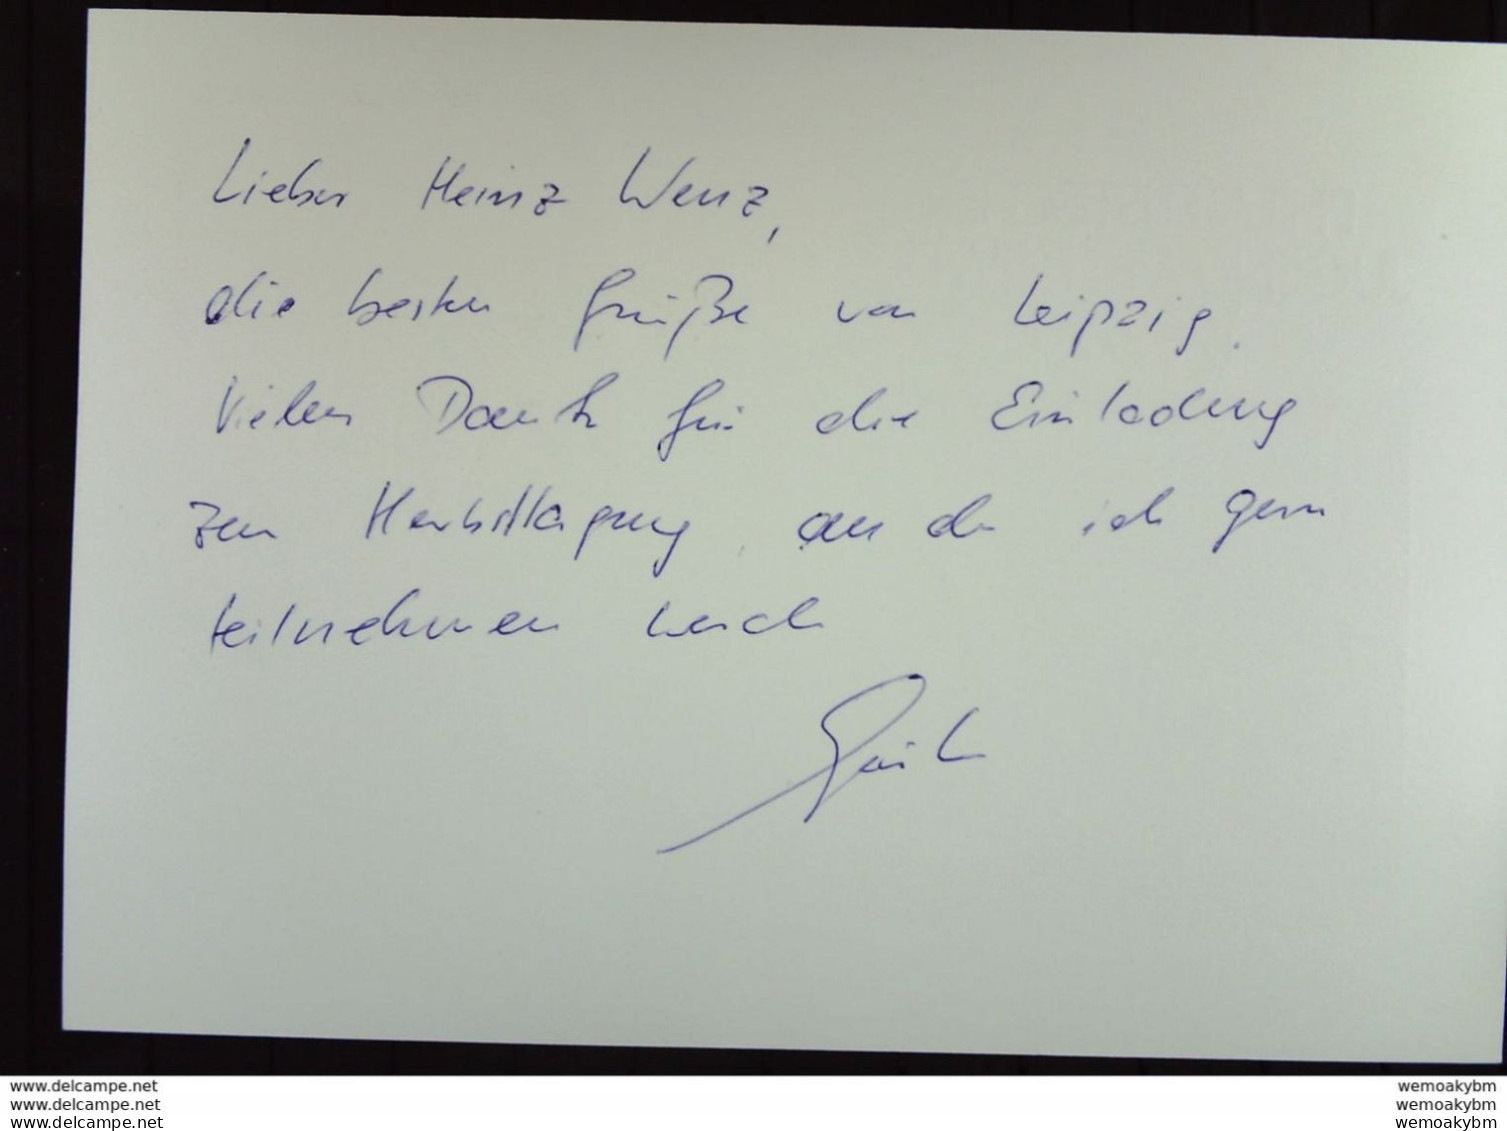 Lieber Heinz Wenz,
die besten Grüße von Leipzig.
Vielen Dank für die Einladung
zur Herbsttagung, an der ich gern
teilnehmen werde
www.delcampe.net
www.delcampe.net
www.delcampe.net
wemoakybm
wemoakybm
wemoakybm